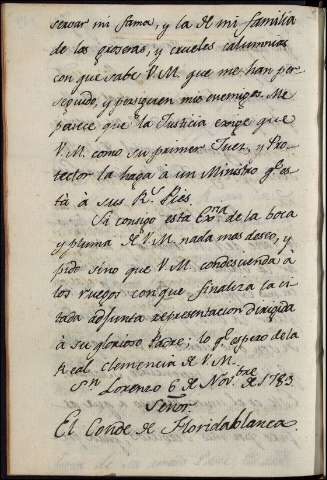 servar mi fama, y la de mi familia
de las groseras, y crueles calumnias
con que sabe V.M. que me han per
seguido, y persiguen mis enemigos. Me
parece que la Justicia exige que
V.M. como su primer Juez, y Pro-
tector la haga à un Ministro qe es-
tà à sus Rs. Pies.
Si consigo esta de la boca
y pluma de V.M. nada mas deseo, y
pido sino que V.M. condescienda à
los ruegos con que finaliza la ci
tada adjunta representacion dirigida
à su glorioso Padre; lo qe espero de la
Real clemencia de V.M.
Sn Lorenzo 6 de Novbre de 1789
Señor.
El Conde de Floridablanca